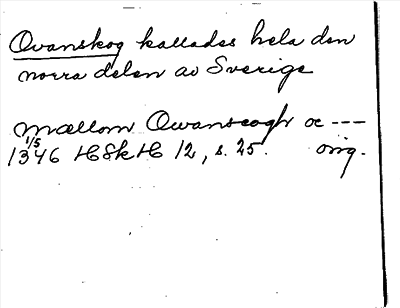 Ovanskog kallades hela den
norra delen av Sverige
mællom Owanscogh oc ---
1/5 1346 HSkH 12, s. 25. orig.